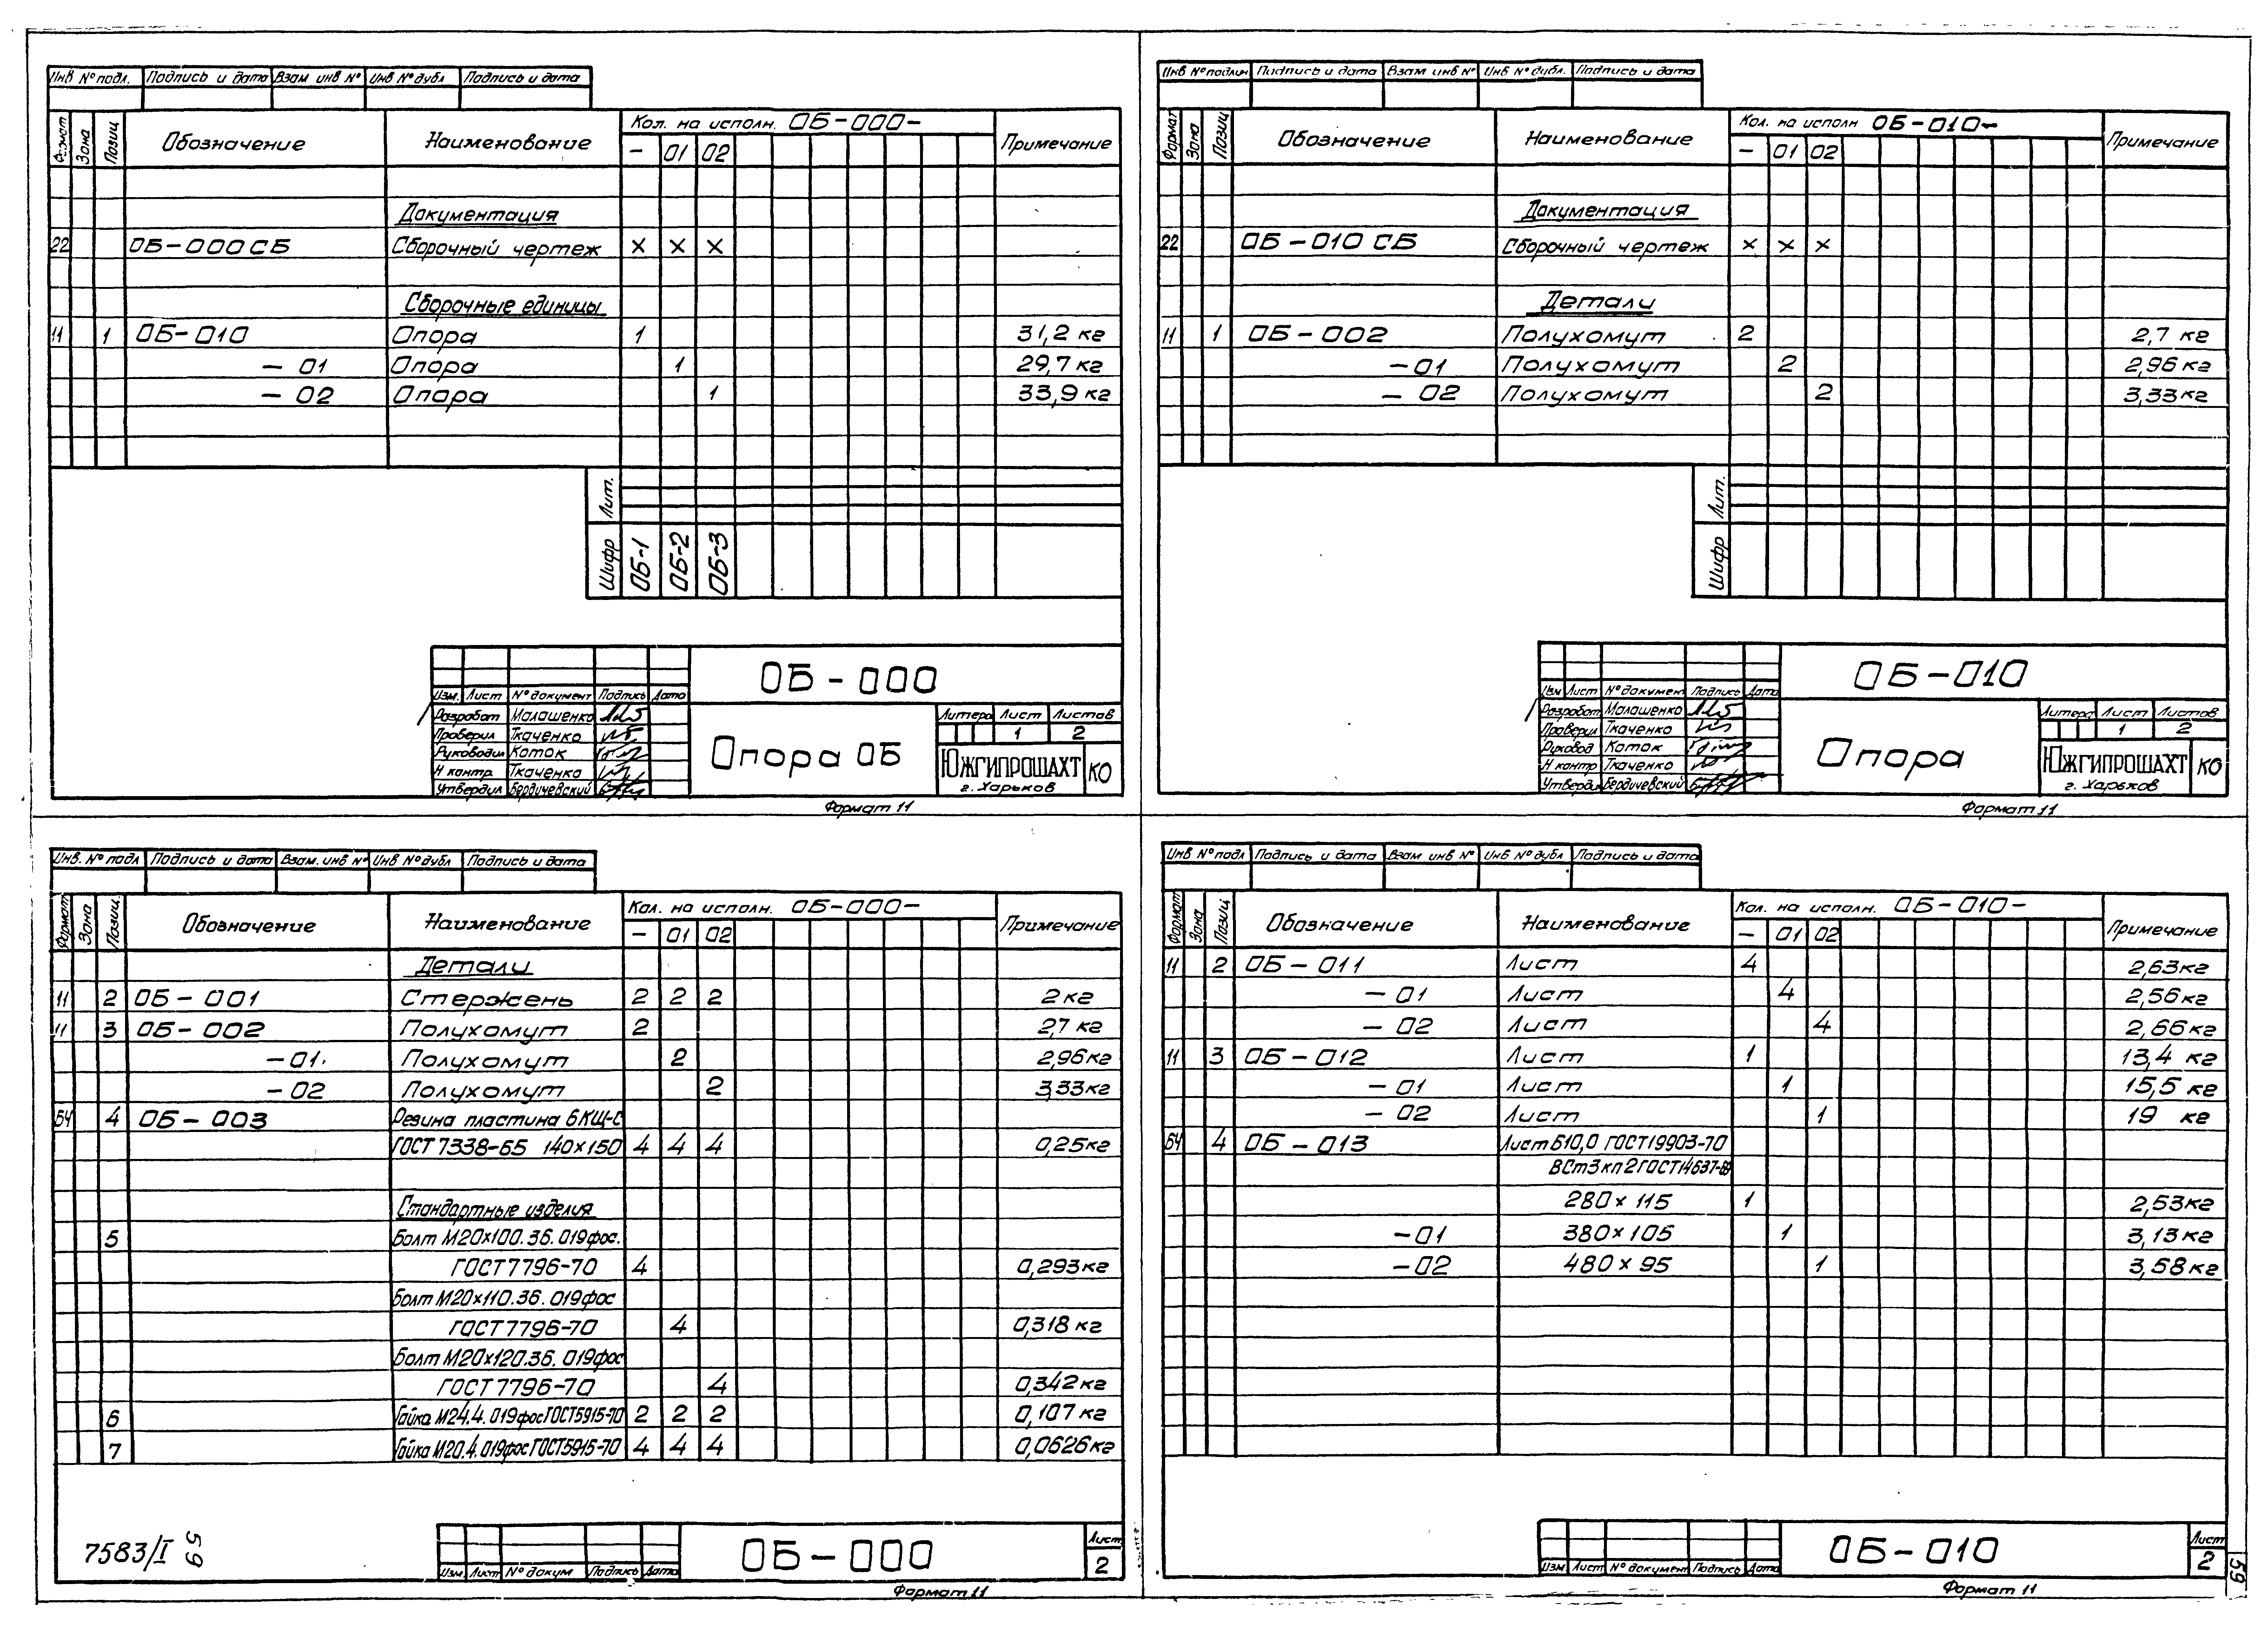 Инв № подл. Подпись и дата Взам инв № Инв № дубл Подпись и дата
Формат Зона Позиц Обозначение Наименование Кол. на исполн. ОБ-000- Примечание
- 01 02
Документация
22 ОБ-000 СБ Сборочный чертеж × × ×
Сборочные единицы
11 1 ОБ-010 Опора 1 31,2 кг
-01 Опора 1 29,7 кг
-02 Опора 1 33,9 кг
Лит.
Шифр ОБ-1 ОБ-2 ОБ-3
ОБ-000
Изм. Лист № документ Подпись Дата
Разработ Малашенко
Проверил Ткаченко
Руководил Коток
Н контр. Ткаченко
Утвердил Бердичевский
Опора ОБ
Литера Лист Листов
1 2
ЮЖГИПРОШАХТ КО
г. Харьков
Формат 11
Инв № подлин Подпись и дата Взам инв № Инв № дубл. Подпись и дата
Формат Зона Позиц Обозначение Наименование Кол. на исполн ОБ-010- Примечание
- 01 02
Документация
22 ОБ-010 СБ Сборочный чертеж × × ×
Детали
11 1 ОБ-002 Полухомут 2 2,7 кг
-01 Полухомут 2 2,96 кг
-02 Полухомут 2 3,33 кг
Лит.
Шифр
ОБ-010
Изм Лист № документ Подпись Дата
Разработ Малашенко
Проверил Ткаченко
Руковод Коток
Н контр Ткаченко
Утвердил Бердичевский
Опора
Литера Лист Листов
1 2
ЮЖГИПРОШАХТ КО
г. Харьков
Формат 11
Инв. № подл Подпись и дата Взам. инв № Инв № дубл Подпись и дата
Формат Зона Позиц. Обозначение Наименование Кол. на исполн. ОБ-000- Примечание
- 01 02
Детали
11 2 ОБ-001 Стержень 2 2 2 2 кг
11 3 ОБ-002 Полухомут 2 2,7 кг
-01 Полухомут 2 2,96 кг
-02 Полухомут 2 3,33 кг
БЧ 4 ОБ-003 Резина пластина 6 КЩ-С
ГОСТ 7338-65 140×150 4 4 4 0,25 кг
Стандартные изделия
5 Болт М20×100.36.019 фос.
ГОСТ 7796-70 4 0,293 кг
Болт М20×110.36.019 фос
ГОСТ 7796-70 4 0,318 кг
Болт М20×120.36.019 фос
ГОСТ 7796-70 4 0,342 кг
6 Гайка М24.4.019 фос ГОСТ 5915-70 2 2 2 0,107 кг
7 Гайка М20.4.019 фос ГОСТ 5915-70 4 4 4 0,0626 кг
7583/I 59
Изм. Лист № докум Подпись Дата
ОБ-000
Лист
2
Формат 11
Инв № подл Подпись и дата Взам инв № Инв № дубл Подпись и дата
Формат Зона Позиц Обозначение Наименование Кол. на исполн. ОБ-010- Примечание
- 01 02
11 2 ОБ-011 Лист 4 2,63 кг
-01 Лист 4 2,56 кг
-02 Лист 4 2,66 кг
11 3 ОБ-012 Лист 1 13,4 кг
-01 Лист 1 15,5 кг
-02 Лист 1 19 кг
БЧ 4 ОБ-013 Лист Б10,0 ГОСТ 19903-70
ВСт3кп2 ГОСТ 14637-69
280×115 1 2,53 кг
-01 380×105 1 3,13 кг
-02 480×95 1 3,58 кг
Изм Лист № документ Подпись Дата
ОБ-010
Лист
2
Формат 11
59